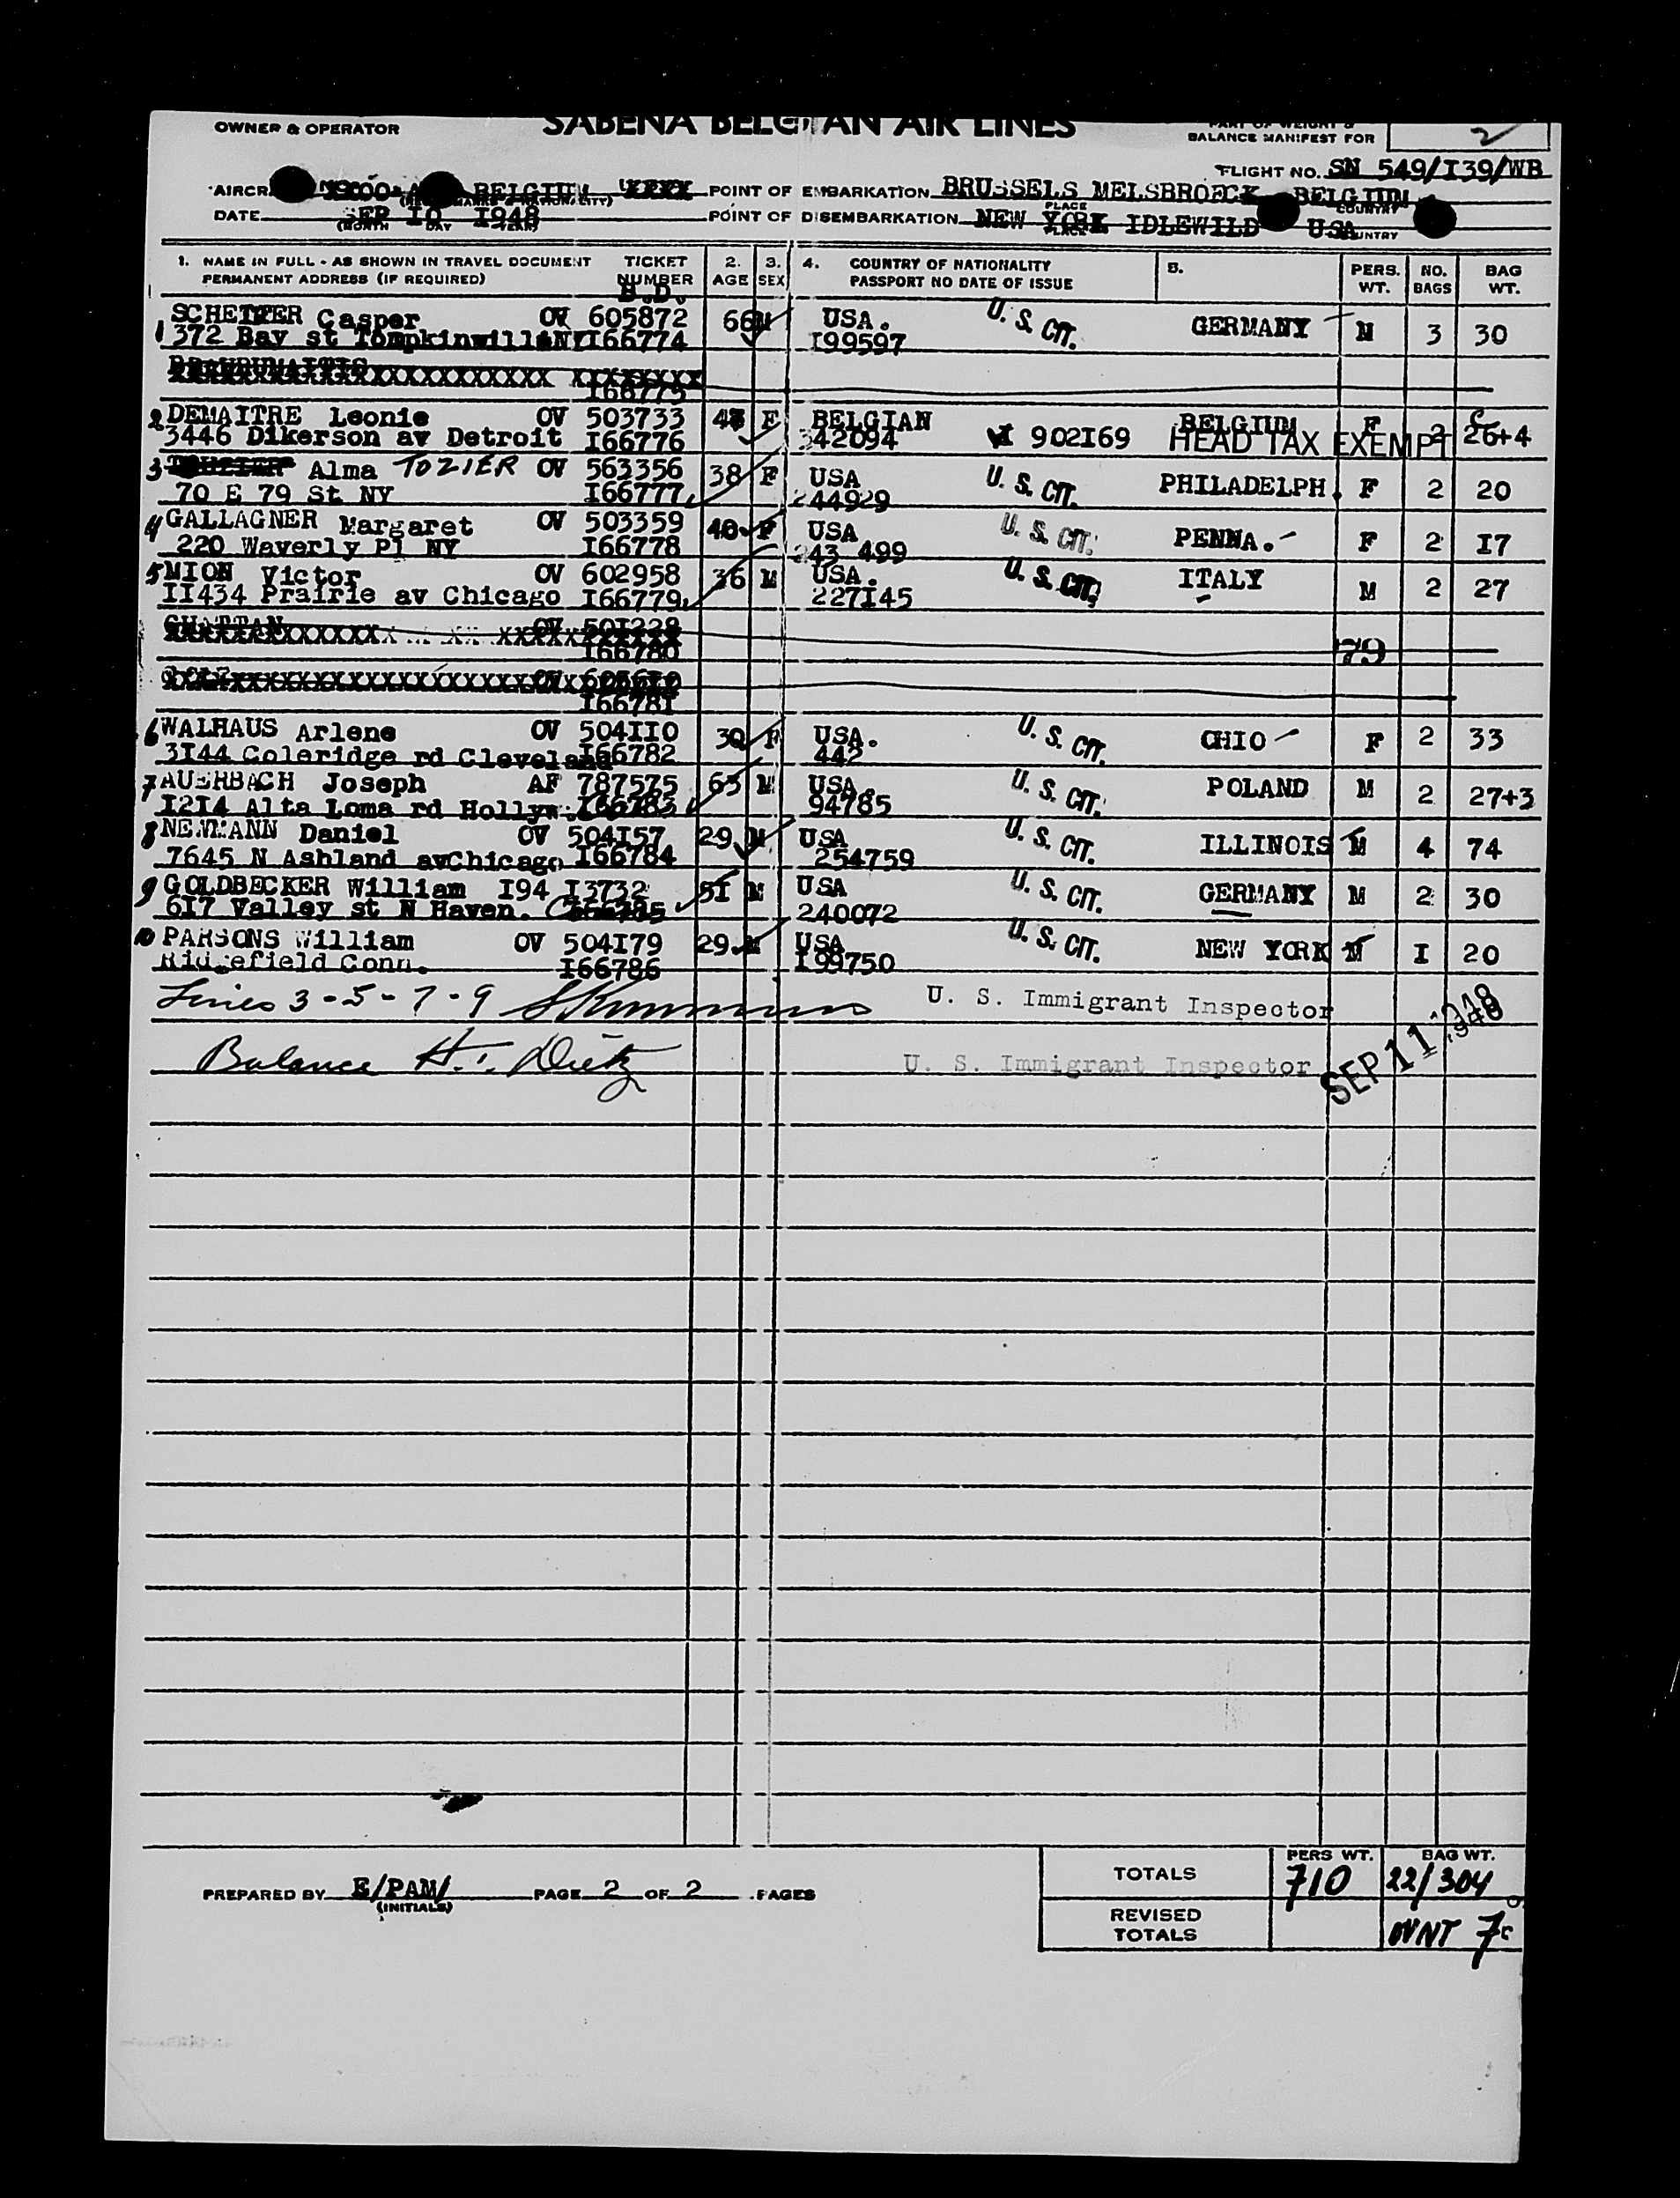 OWNER & OPERATOR SABENA BELGIAN AIR LINES PART OF WEIGHT &
BALANCE MANIFEST FOR 2
FLIGHT NO. SN 549/I39/WB
AIRCR BELGIUM XXXX POINT OF EMBARKATION BRUSSELS MELSBROECK BELGIUM
PLACE COUNTRY
DATE SEP IO I948 POINT OF DISEMBARKATION NEW YORK IDLEWILD USA
(MONTH DAY YEAR) PLACE COUNTRY
1. NAME IN FULL - AS SHOWN IN TRAVEL DOCUMENT TICKET 2. 3. 4. COUNTRY OF NATIONALITY 5. PERS. NO. BAG
PERMANENT ADDRESS (IF REQUIRED) NUMBER AGE SEX PASSPORT NO DATE OF ISSUE WT. BAGS WT.
B.D.
1 Casper OV 605872 66 M USA. U. S. CIT. GERMANY M 3 30
372 Bay st TompkinvilleNY I66774 I99597
I66775
2 DEMAITRE Leonie OV 503733 F BELGIAN BELGIUM F 2 26+4
3446 Dikerson av Detroit I66776 342094 VI 902I69 HEAD TAX EXEMPT
3 Alma TOZIER OV 563356 38 F USA U. S. CIT. PHILADELPH. F 2 20
70 E 79 St NY I66777 244929
4 GALLAGNER Margaret OV 503359 40 F USA U. S. CIT. PENNA. F 2 I7
220 Waverly Pl NY I66778 243 499
5 MION Victor OV 602958 36 M USA. U. S. CIT. ITALY M 2 27
II434 Prairie av Chicago I66779 227I45
OV 50I228
I66780 79
I66781
6 WALHAUS Arlene OV 504IIO 30 F USA. U. S. CIT. OHIO F 2 33
3I44 Coleridge rd Cleveland I66782 442
7 AUERBACH Joseph AF 787575 63 M USA. U. S. CIT. POLAND M 2 27+3
I2I4 Alta Loma rd Hollyw. I66783 94785
8 NEWMANN Daniel OV 504I57 29 M USA U. S. CIT. ILLINOIS M 4 74
7645 N Ashland avChicago I66784 254759
9 GOLDBECKER William I94 I3732 5I M USA U. S. CIT. GERMANY M 2 30
6I7 Valley st N Haven. 240072
10 PARSONS William OV 504I79 29 M USA U. S. CIT. NEW YORK M I 20
Ridgefield Conn. I66786 I99750
Lines 3-5-7-9 U. S. Immigrant Inspector
Balance H. Dietz U. S. Immigrant Inspector SEP 11 1948
PERS WT. BAG WT.
TOTALS 710 22/304
PREPARED BY E/PAM/ PAGE 2 OF 2 PAGES
(INITIALS)
REVISED
TOTALS